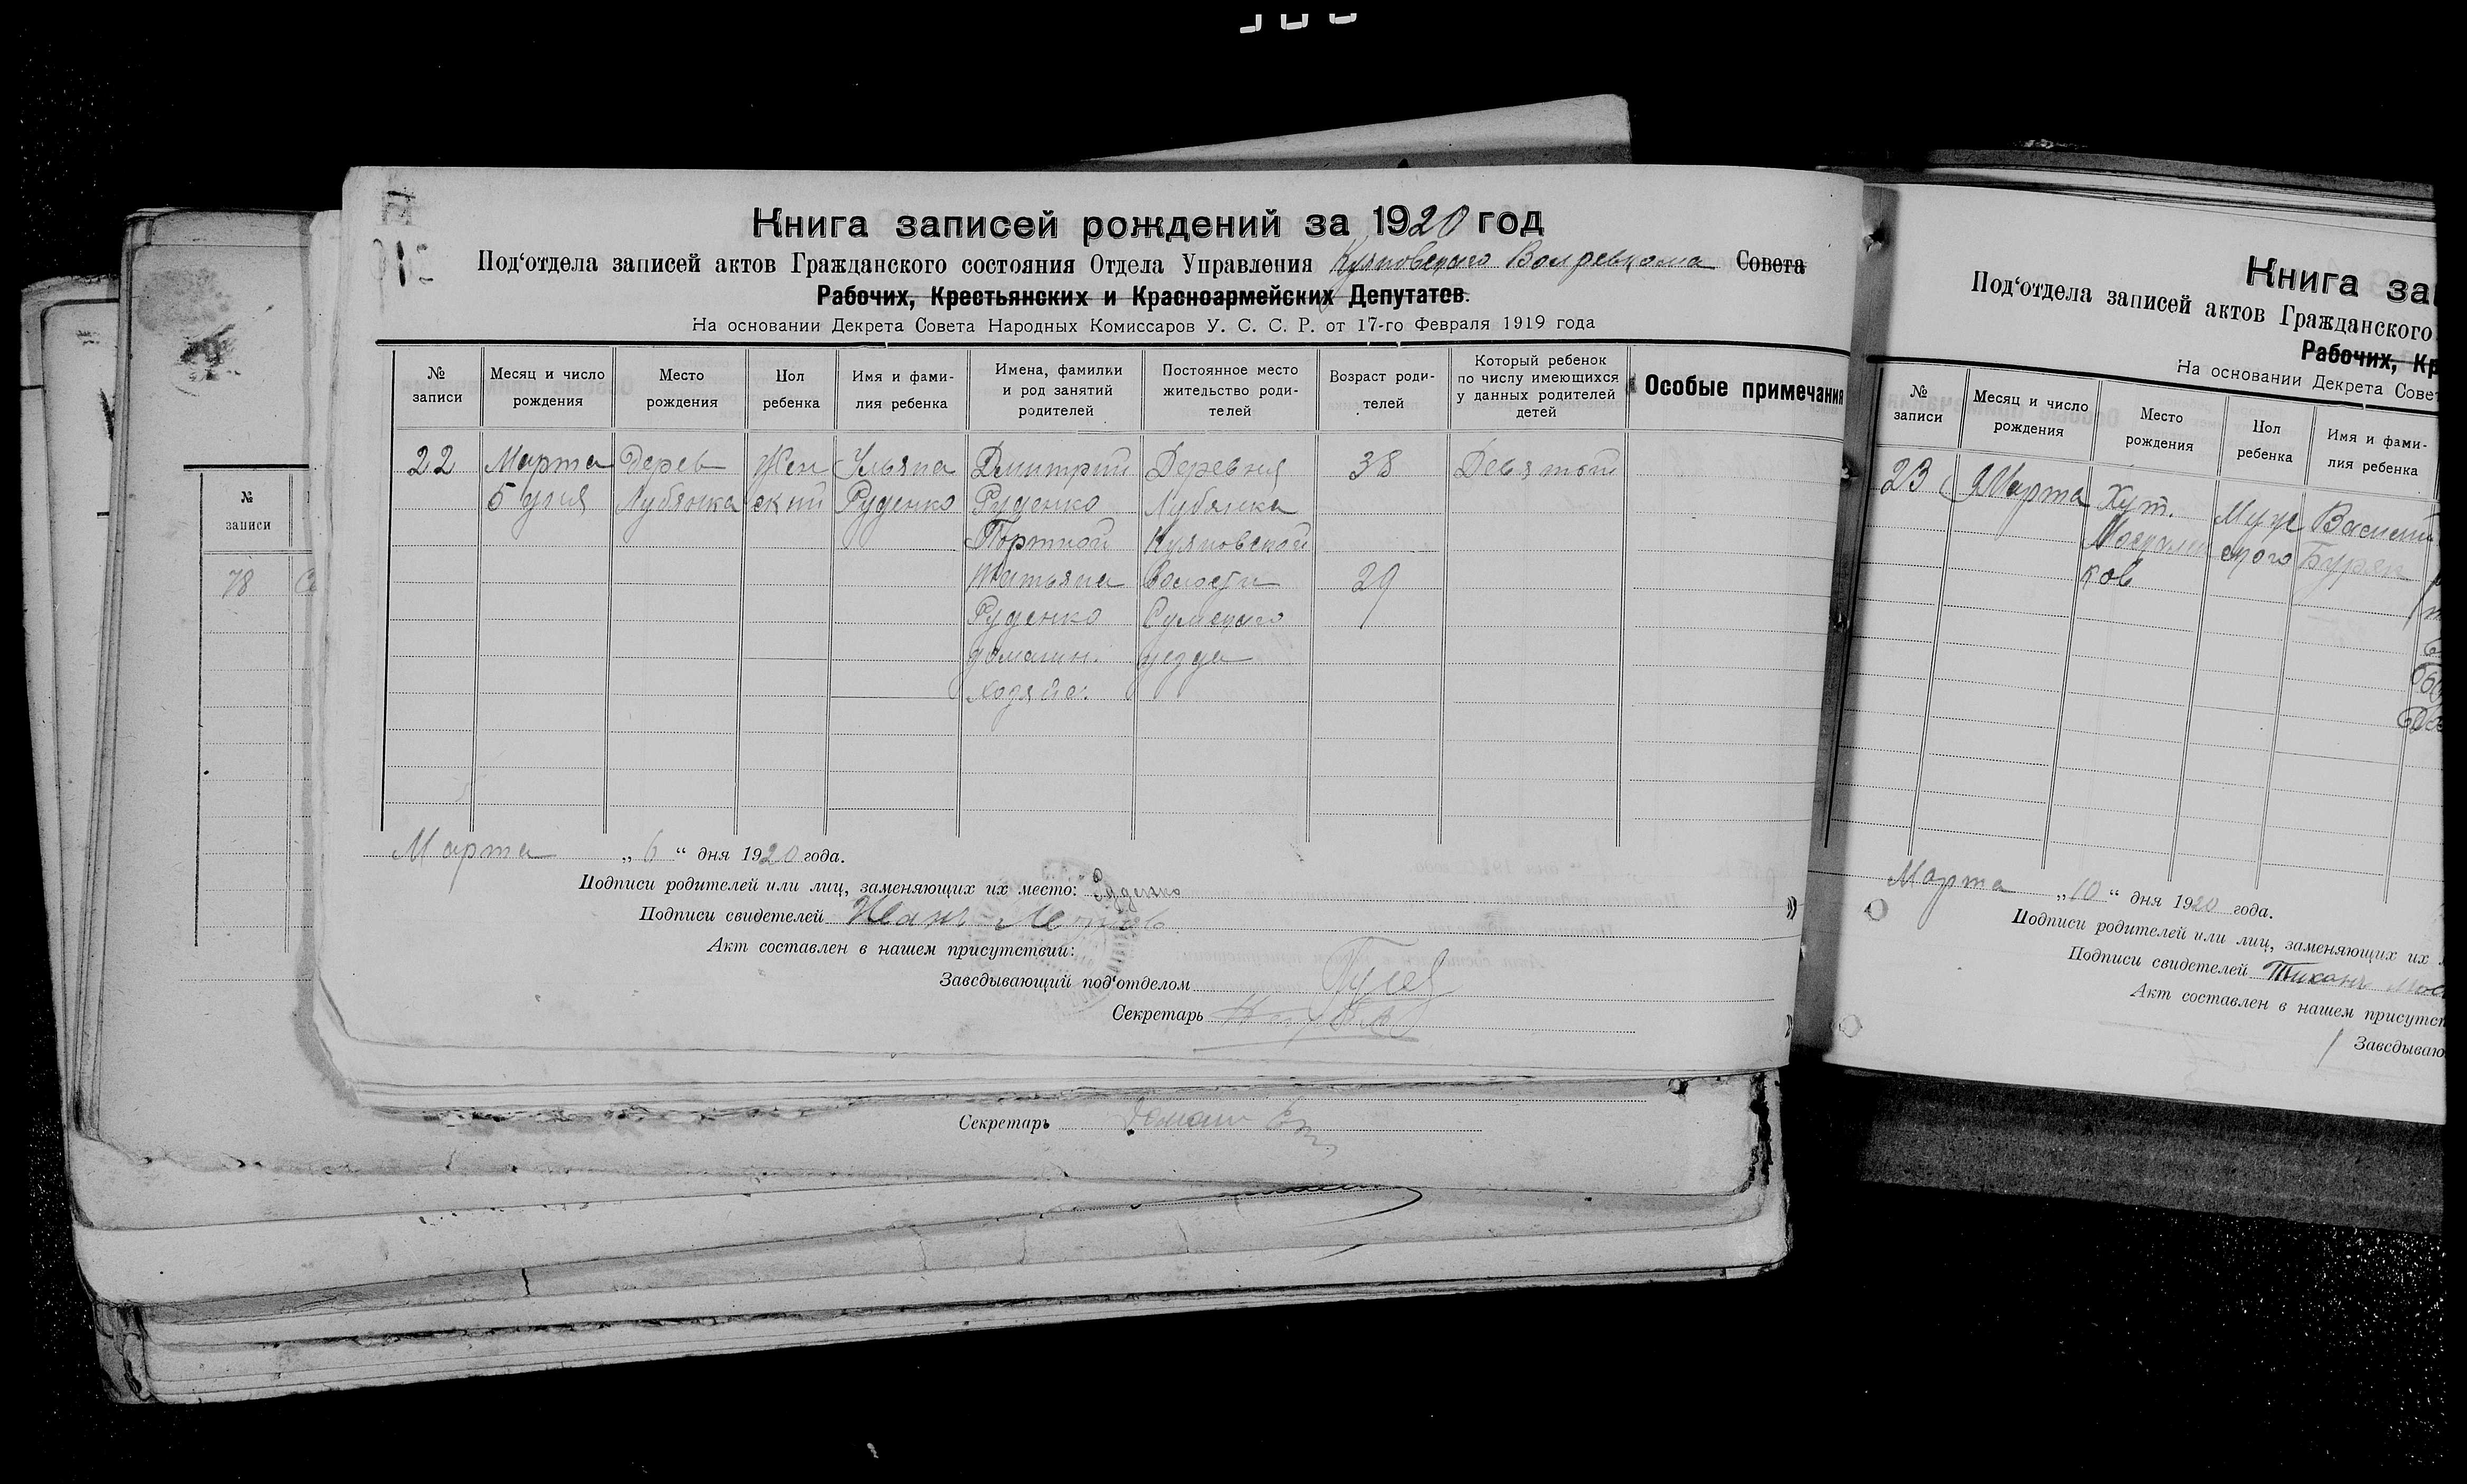 Книга записей рождений за 1920 год
Под'отдела записей актов Гражданского состояния Отдела Управления Куяновскаго Волревкома Совета
Рабочих, Крестьянских и Красноармейских Депутатов.
На основании Декрета Совета Народных Комиссаров У. С. С. Р. от 17-го Февраля 1919 года
№ записи
Месяц и число рождения
Место рождения
Пол ребенка
Имя и фамилия ребенка
Имена, фамилии и род занятий родителей
Постоянное место жительство родителей
Возраст родителей
Который ребенок по числу имеющихся у данных родителей детей
Особые примечания
22 Марта Дерев Жен Ульяна Дмитрий Деревня 38 Девятый
5 дня Лубянка ский Руденко Руденко Лубянка
Портной Куяновской
Татьяна Волости 29
Руденко Сумскаго
домашн. уезда
хозяйс.
Марта „ 6 “ дня 1920 года.
Подписи родителей или лиц, заменяющих их место: Руденко
Подписи свидетелей Иванъ
Акт составлен в нашем присутствии:
Заведывающий под'отделом
Секретарь
Секретарь
№
записи
78
Книга за
Под'отдела записей актов Гражданского
Рабочих, Кр
На основании Декрета Совет
№ записи
Месяц и число рождения
Место рождения
Пол ребенка
Имя и фамилия ребенка
23 Марта Хут. Муж Василий
ского Буряк
ков
Марта „ 10 “ дня 1920 года.
Подписи родителей или лиц, заменяющих их
Подписи свидетелей Тихонъ
Акт составлен в нашем присутст
Заведываю